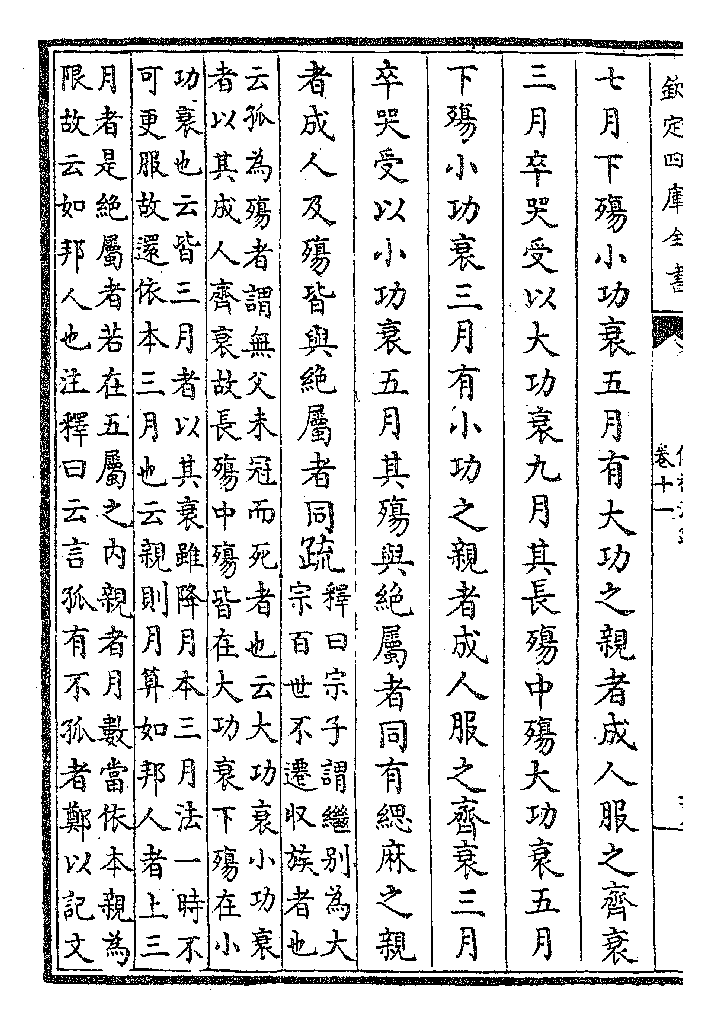 欽定四庫全書
卷十一
七月下殤小功衰五月有大功之親者成人服之齊衰
三月卒哭受以大功衰九月其長殤中殤大功衰五月
下殤小功衰三月有小功之親者成人服之齊衰三月
卒哭受以小功衰五月其殤與絶屬者同有緦麻之親
者成人及殤皆與絶屬者同疏
釋曰宗子謂繼别為大
宗百世不遷収族者也
云孤為殤者謂無父未冠而死者也云大功衰小功衰
者以其成人齊衰故長殤中殤皆在大功衰下殤在小
功衰也云皆三月者以其衰雖降月本三月法一時不
可更服故還依本三月也云親則月算如邦人者上三
月者是絶屬者若在五屬之内親者月數當依本親為
限故云如邦人也注釋曰云言孤有不孤者鄭以記文